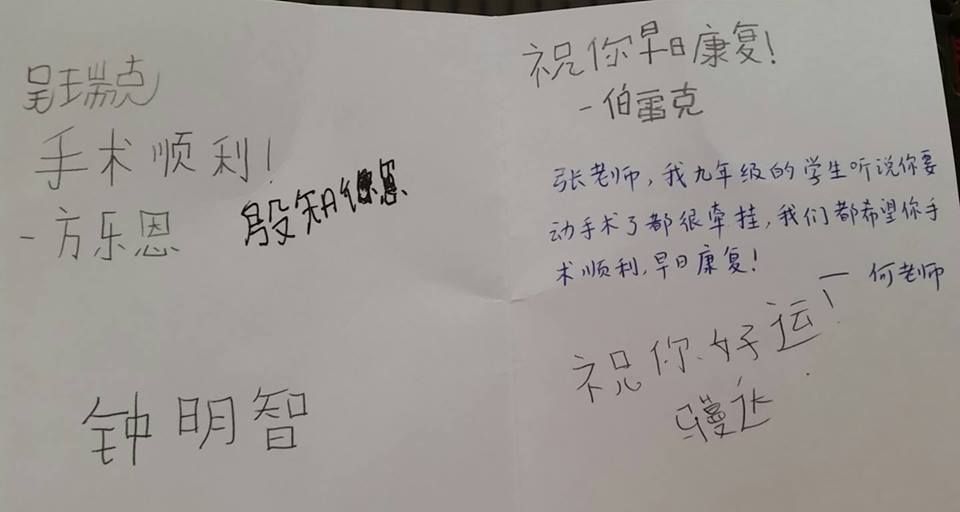 吴瑞克
手术顺利！
- 方乐恩
殷知恩
钟明智
祝你早日康复！
- 伯雷克
张老师，我九年级的学生听说你要
动手术了都很牵挂，我们都希望你手
术顺利，早日康复！
— 何老师
祝你好运！